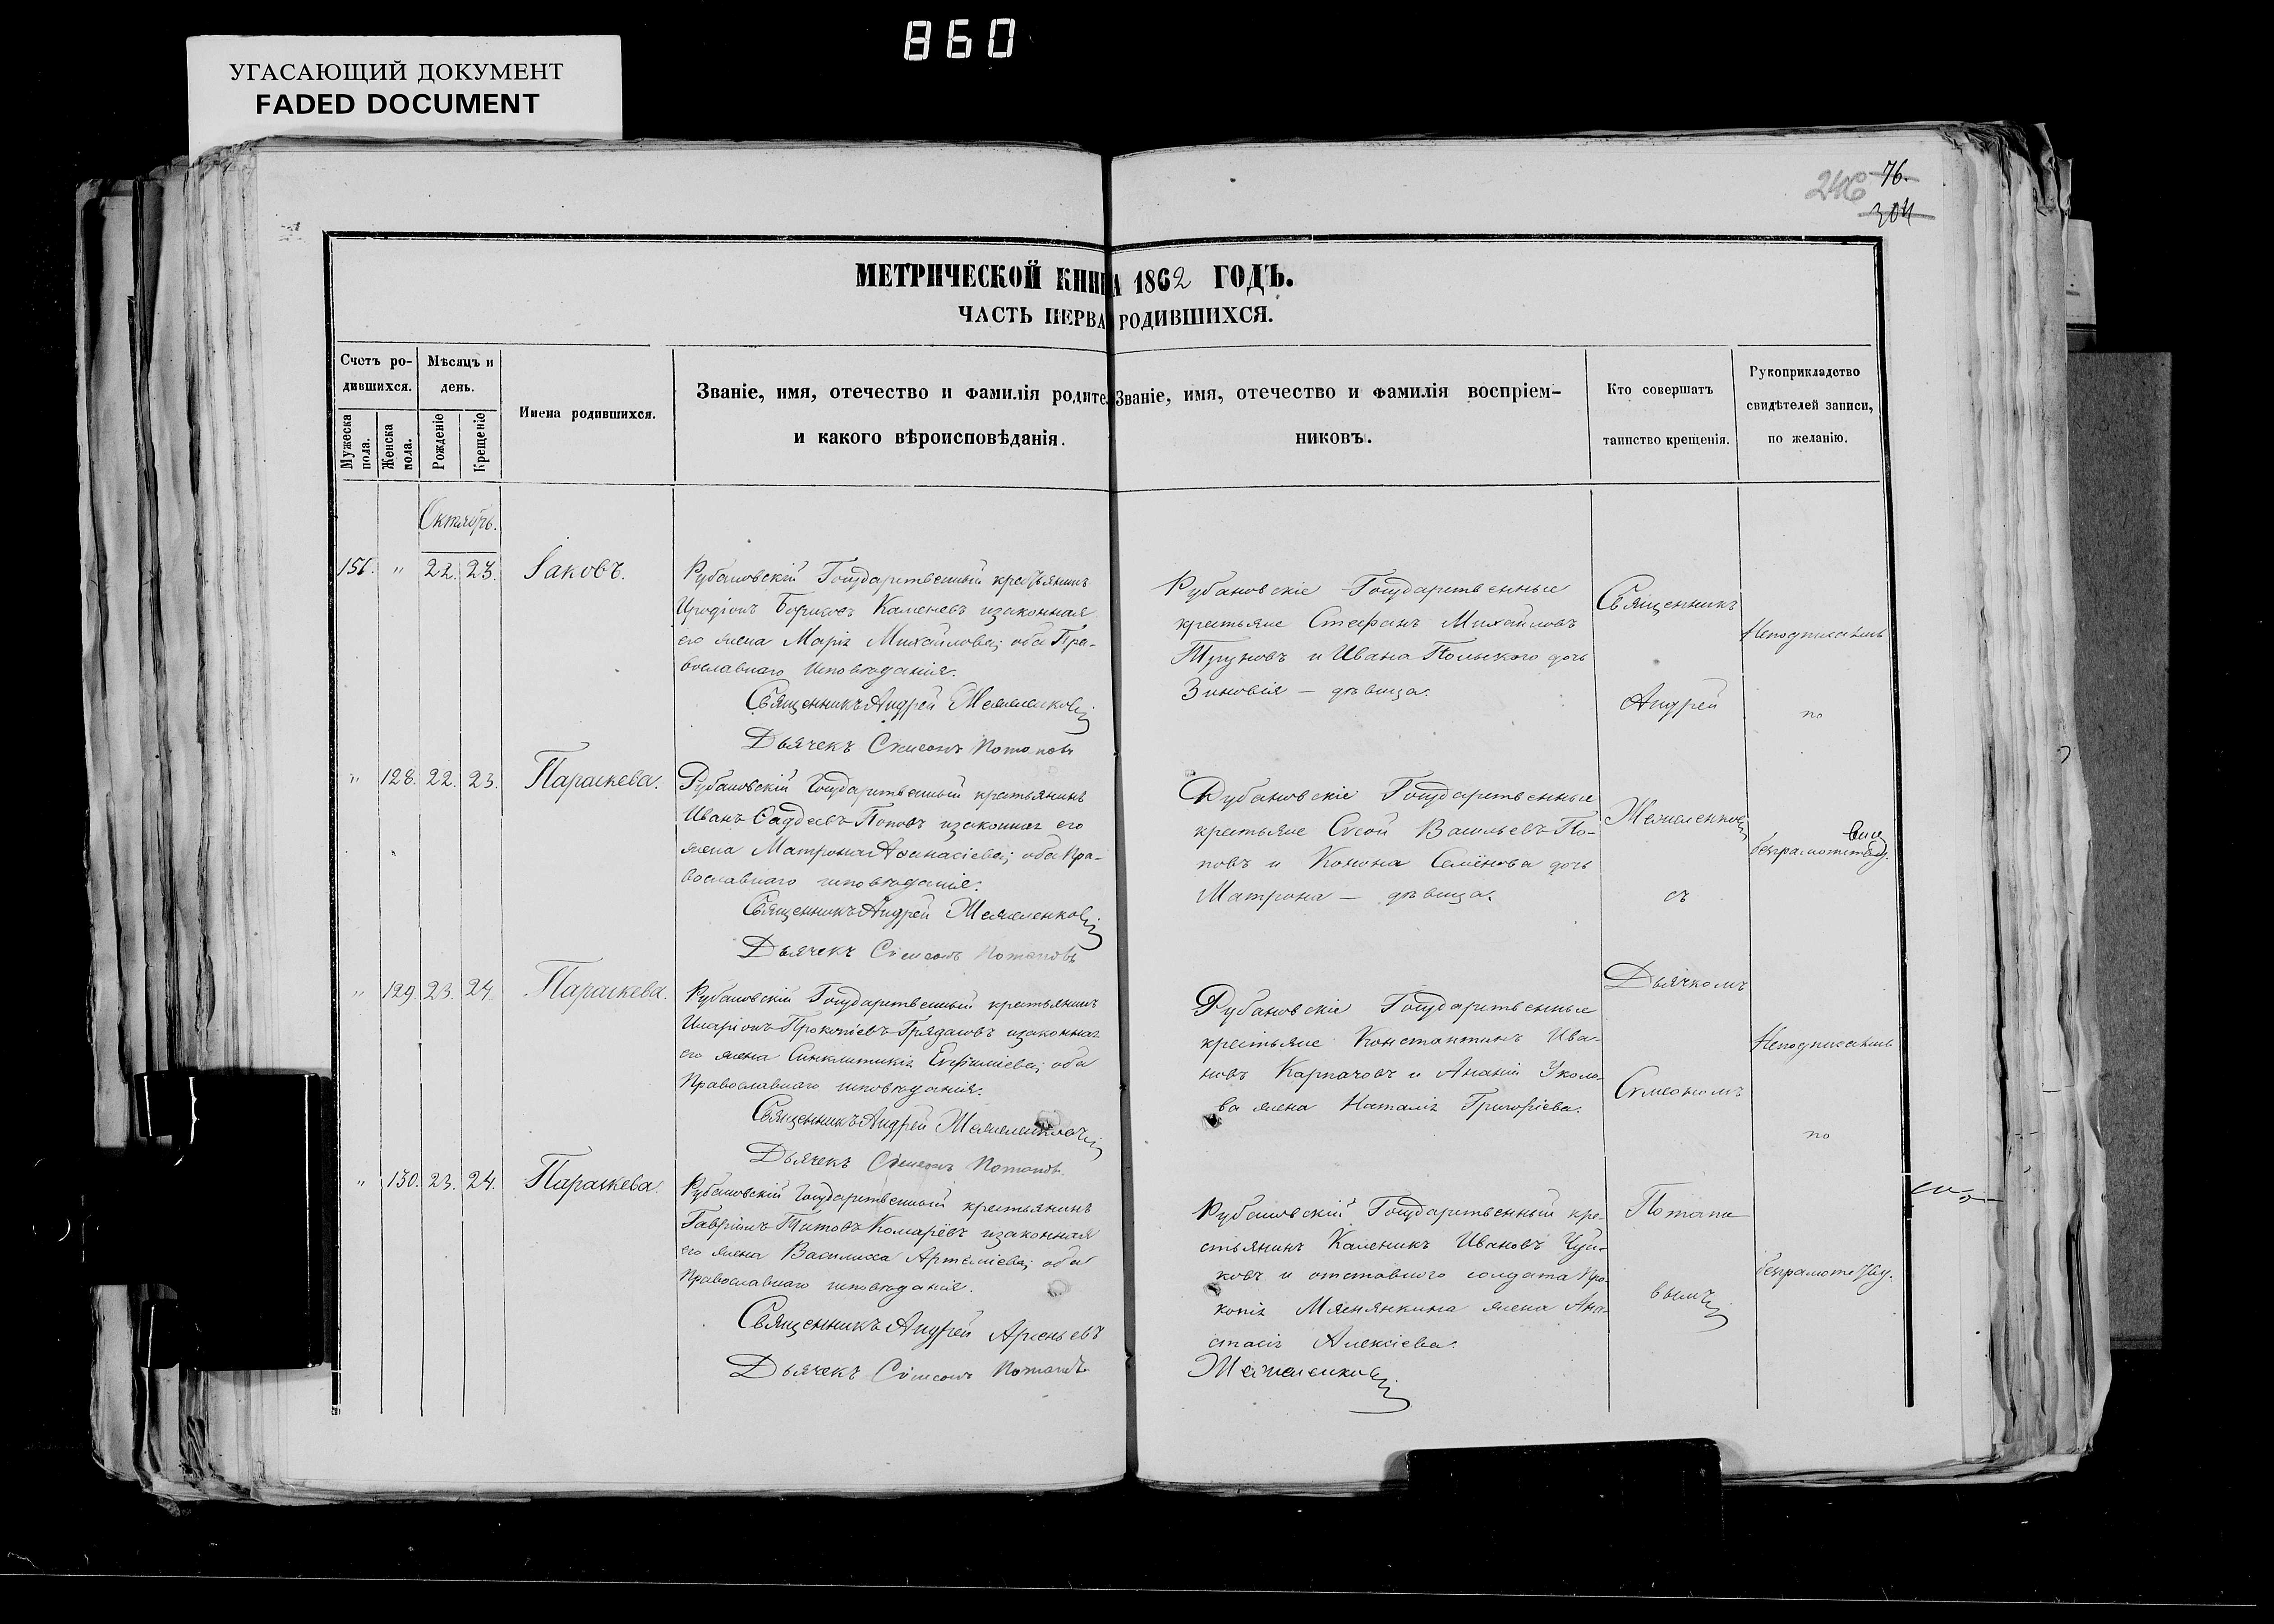 860
УГАСАЮЩИЙ ДОКУМЕНТ
FADED DOCUMENT
246 76.
304
МЕТРИЧЕСКОЙ КНИГА 1862 ГОДЪ.
ЧАСТЬ ПЕРВА РОДИВШИХСЯ.
Счетъ ро-
дившихся.
Мужеска пола.
Женска пола.
Мѣсяцъ и
день.
Рожденіе
Крещеніе
Имена родившихся.
Званіе, имя, отечество и фамилія родите
и какого вѣроисповѣданія.
Званіе, имя, отечество и фамилія воспріем-
никовъ.
Кто совершатъ
таинство крещенія.
Рукоприкладство
свидѣтелей записи,
по желанію.
Октябрь.
156. " 22. 23. Іаковъ.
Рубановскій Государственный крестьянинъ
Иродіонъ Борисовъ Каменевъ изаконная
его жена Марія Михайлова; оба Пра-
вославнаго исповѣданія.
Священникъ Андрей
Дьячекъ Симеонъ Потаповъ
Рубановскіе Государственные
крестьяне Стефанъ Михайловъ
Труновъ и Ивана Польского дочь
Зиновія — дѣвица.
" 128. 22. 23. Параскева.
Рубановскій Государственный крестьянинъ
Иванъ Фаддеевъ Поповъ изаконная его
жена Матрона Афанасіева; оба Пра-
вославнаго исповѣданія.
Священникъ Андрей
Дьячекъ Симеонъ Потаповъ
Рубановскіе Государственные
крестьяне Сысой Васильевъ По-
повъ и Конона Семёнова дочь
Матрона — дѣвица.
" 129. 23. 24. Параскева.
Рубановскій Государственный крестьянинъ
Иларіонъ Прокопіевъ изаконная
его жена Синклитикія Евфиміева; оба
Православнаго исповѣданія.
Священникъ Андрей
Дьячекъ Симеонъ Потаповъ
Рубановскіе Государственные
крестьяне Константинъ Ива-
новъ Карпачовъ и Ананіи Уколо-
ва жена Наталія Григоріева.
" 130. 23. 24. Параскева.
Рубановскій Государственный крестьянинъ
Гавріилъ Титовъ Комарёвъ изаконная
его жена Василиса Артеміева; оба
Православнаго исповѣданія.
Священникъ Андрей Арсеньевъ
Дьячекъ Симеонъ Потаповъ
Рубановскій Государственный кре-
стьянинъ Каленикъ Ивановъ Чуй-
ковъ и отставного солдата Про-
копія жена Ана-
стасія Алексіева.
Священникъ
Андрей
съ
Дьячкомъ
Симеономъ
Потапо
вымъ
Неподписались
по
безграмотству.
Неподписались
по
безграмотству.